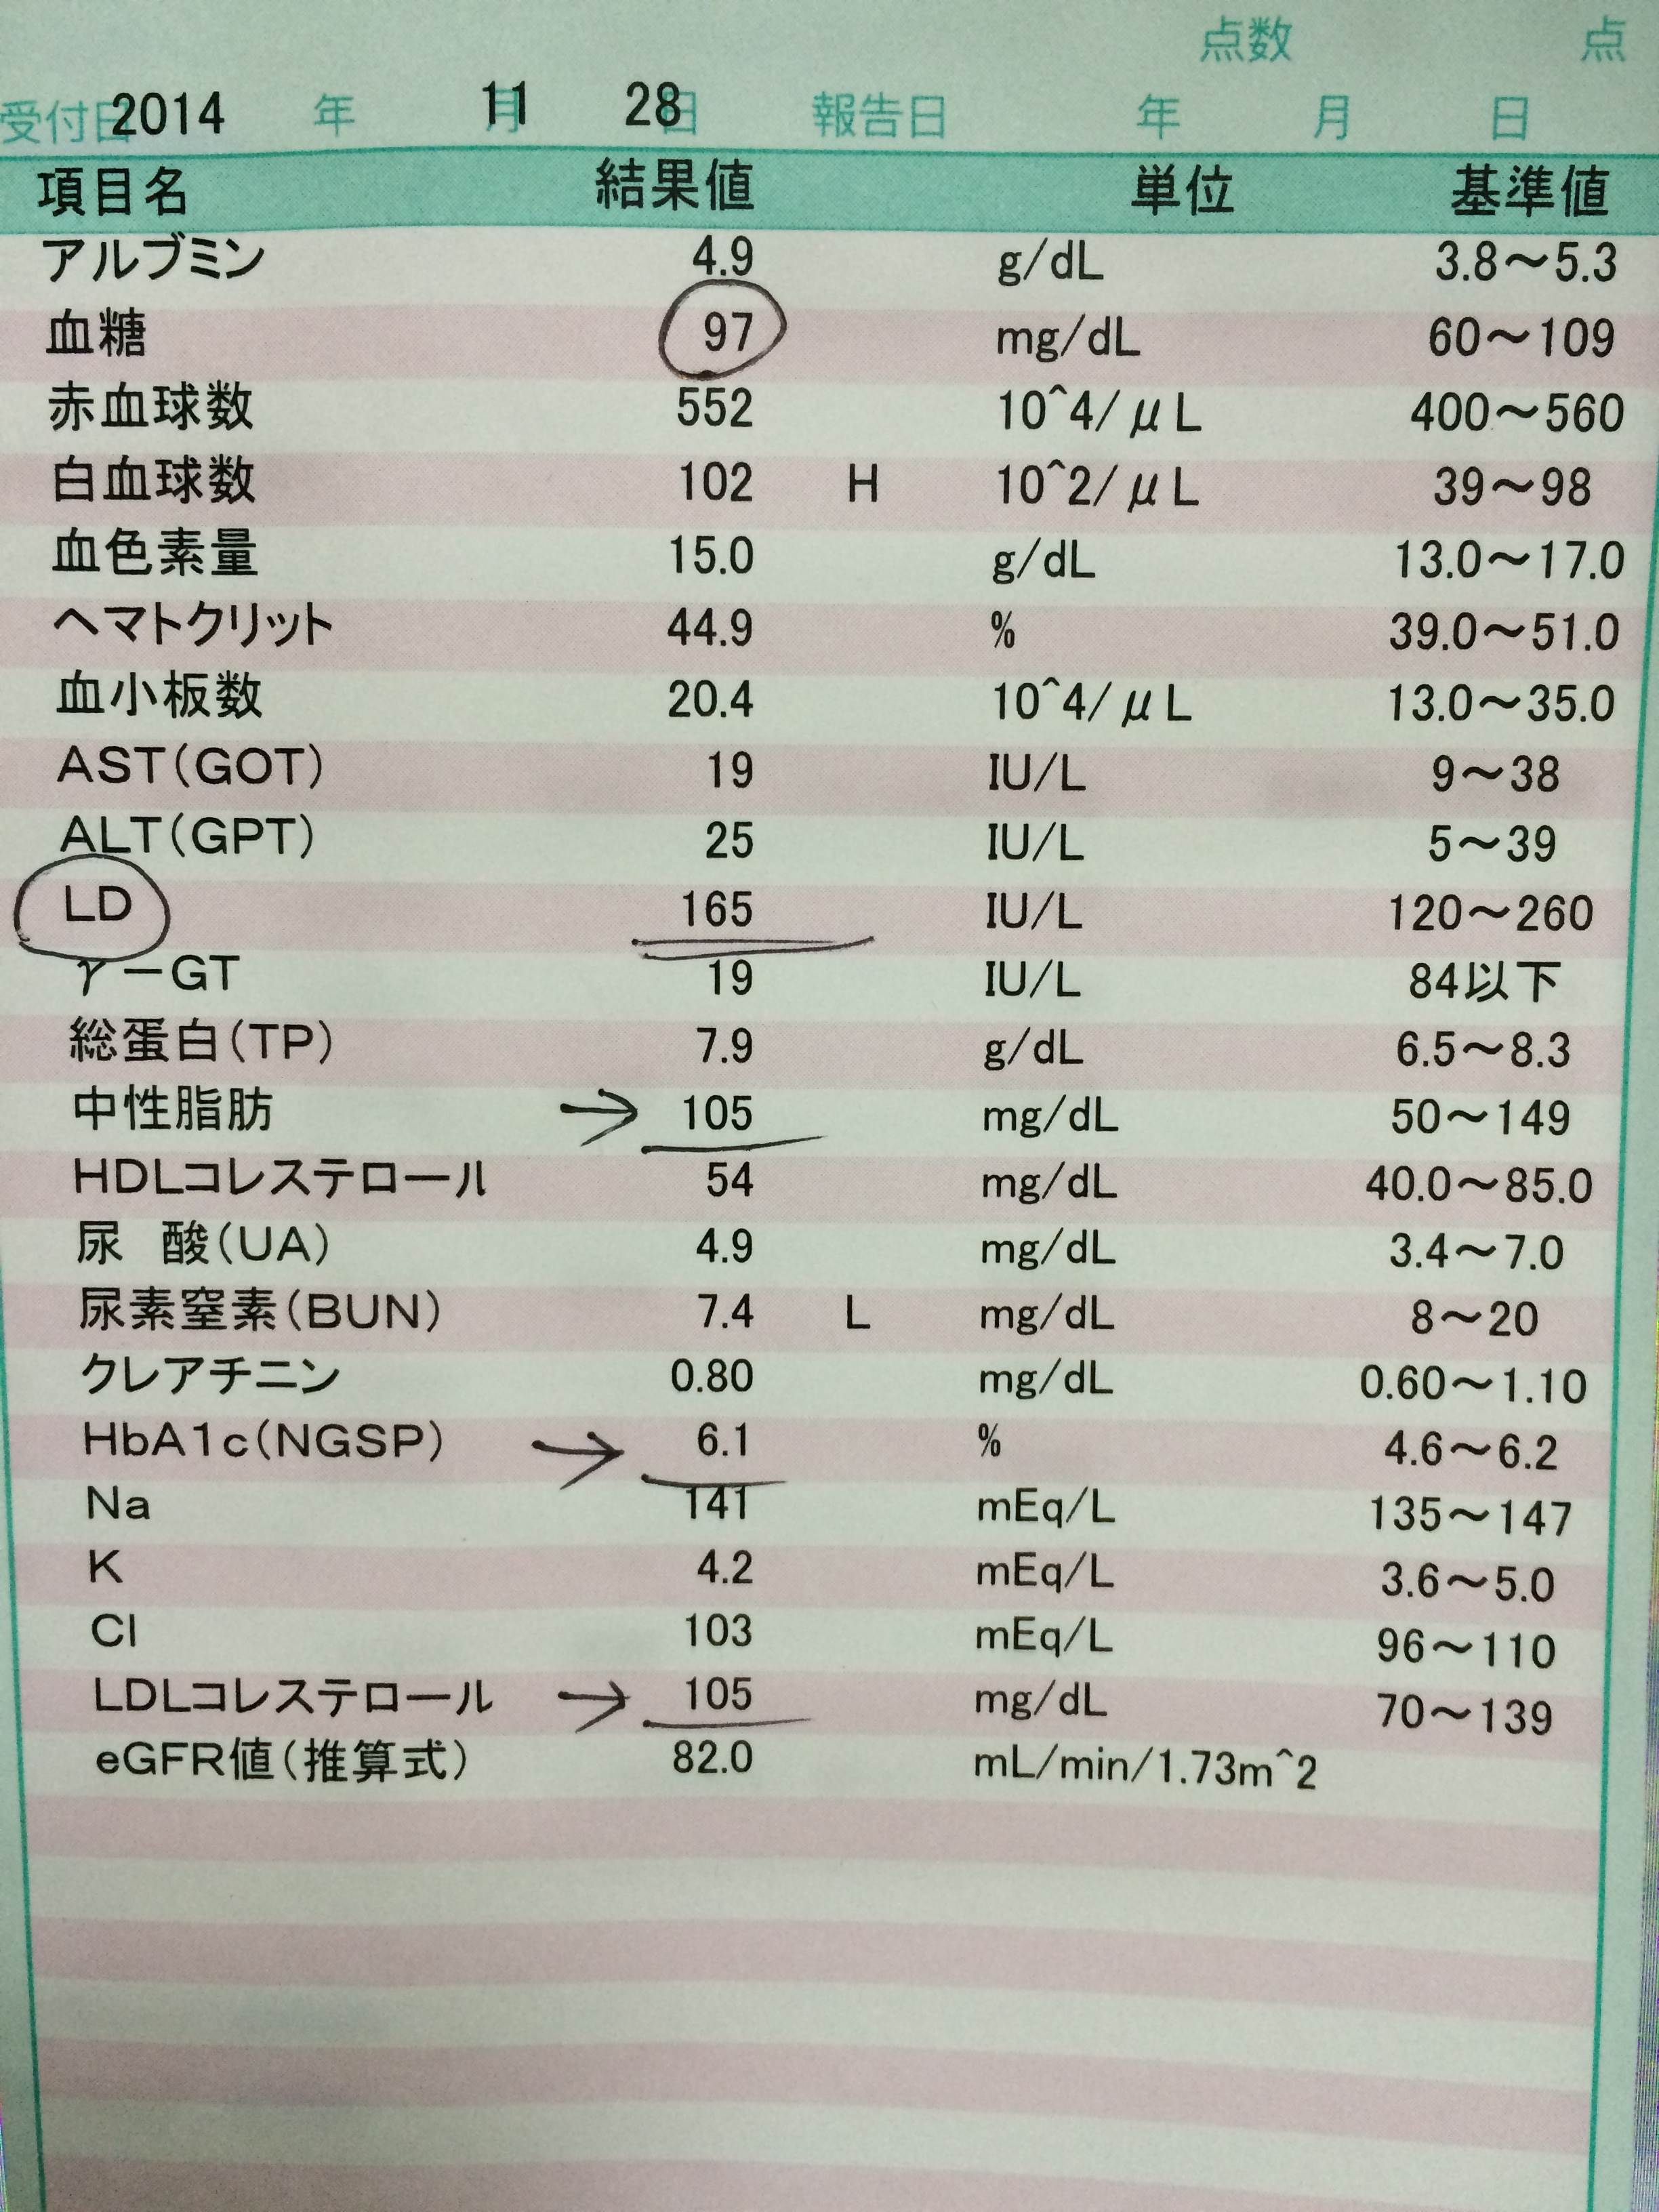 点数 点
受付日 2014 年 11 月 28 日 報告日 年 月 日
項目名 結果値 単位 基準値
アルブミン 4.9 g/dL 3.8～5.3
血糖 97 mg/dL 60～109
赤血球数 552 10^4/μL 400～560
白血球数 102 H 10^2/μL 39～98
血色素量 15.0 g/dL 13.0～17.0
ヘマトクリット 44.9 % 39.0～51.0
血小板数 20.4 10^4/μL 13.0～35.0
AST(GOT) 19 IU/L 9～38
ALT(GPT) 25 IU/L 5～39
LD 165 IU/L 120～260
γ－GT 19 IU/L 84以下
総蛋白(TP) 7.9 g/dL 6.5～8.3
中性脂肪 → 105 mg/dL 50～149
HDLコレステロール 54 mg/dL 40.0～85.0
尿 酸(UA) 4.9 mg/dL 3.4～7.0
尿素窒素(BUN) 7.4 L mg/dL 8～20
クレアチニン 0.80 mg/dL 0.60～1.10
HbA1c(NGSP) → 6.1 % 4.6～6.2
Na 141 mEq/L 135～147
K 4.2 mEq/L 3.6～5.0
Cl 103 mEq/L 96～110
LDLコレステロール → 105 mg/dL 70～139
eGFR値(推算式) 82.0 mL/min/1.73m^2